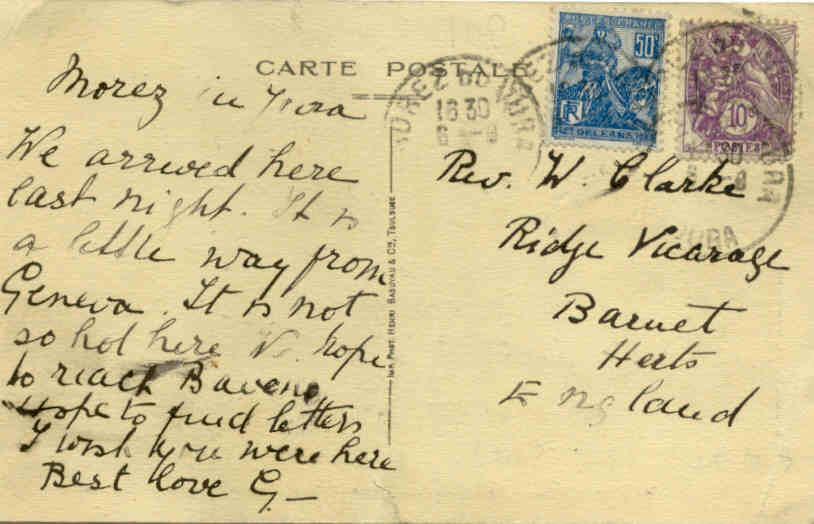 CARTE POSTALE
Morez in Jura
We arrived here
last night. It is
a little way from
Geneva. It is not
so hot here We hope
to reach Baveno
Hope to find letters
I wish you were here
Best love G—
IMP. PHOT. HENRI BASUYAU & CIE, TOULOUSE
50c
ORLEANS
RF
10c
POSTES
MOREZ DU JURA
16 30
Rev. W. Clarke
Ridge Vicarage
Barnet
Herts
England